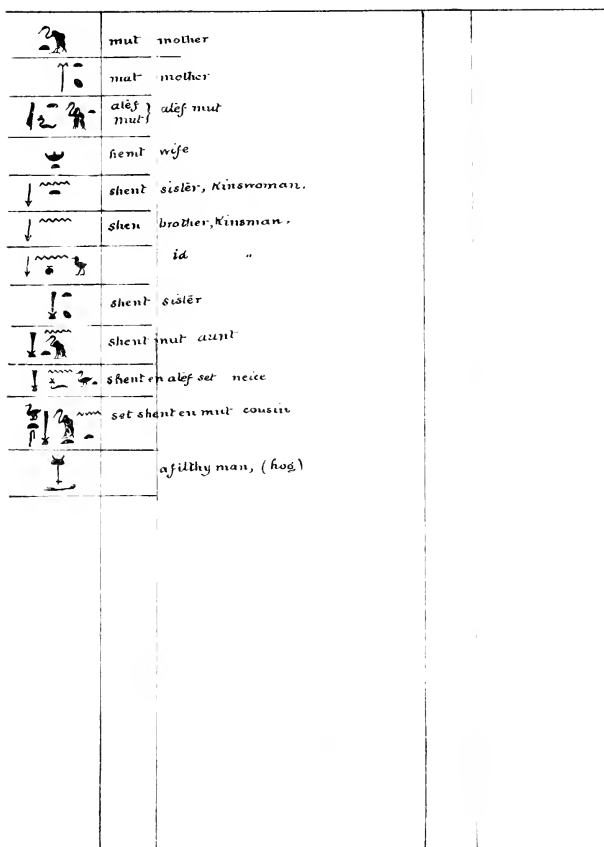 mut mother
mut mother
alèf mut } alèf mut
hemt wife
shent sistēr, Kinswoman.
shen brother, Kinsman.
id "
shent sistēr
shent mut aunt
shent en alèf set neice
set shent en mut cousin
a filthy man, (hog)